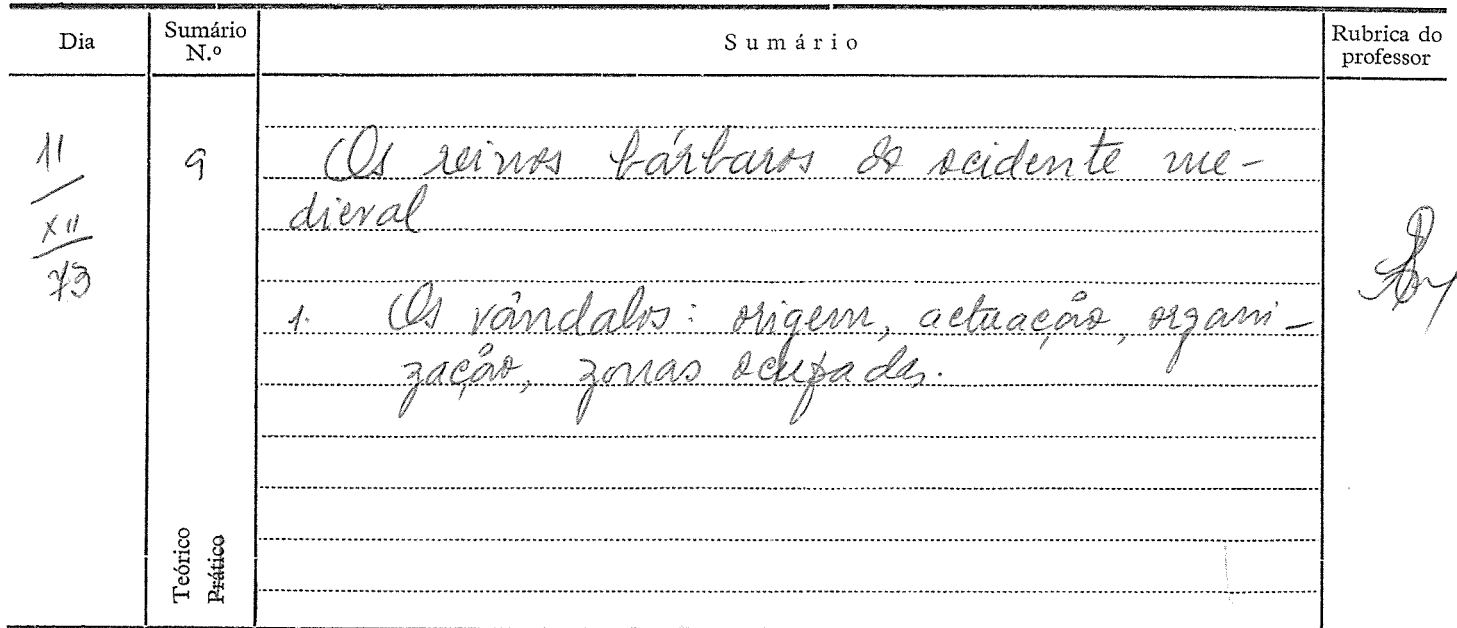 Dia
Sumário
N.º
Sumário
Rubrica do
professor
11
XII
73
9
Os reinos bárbaros do ocidente me-
dieval
1. Os vândalos: origem, actuação, organi-
zação, zonas ocupadas.
Teórico
Prático